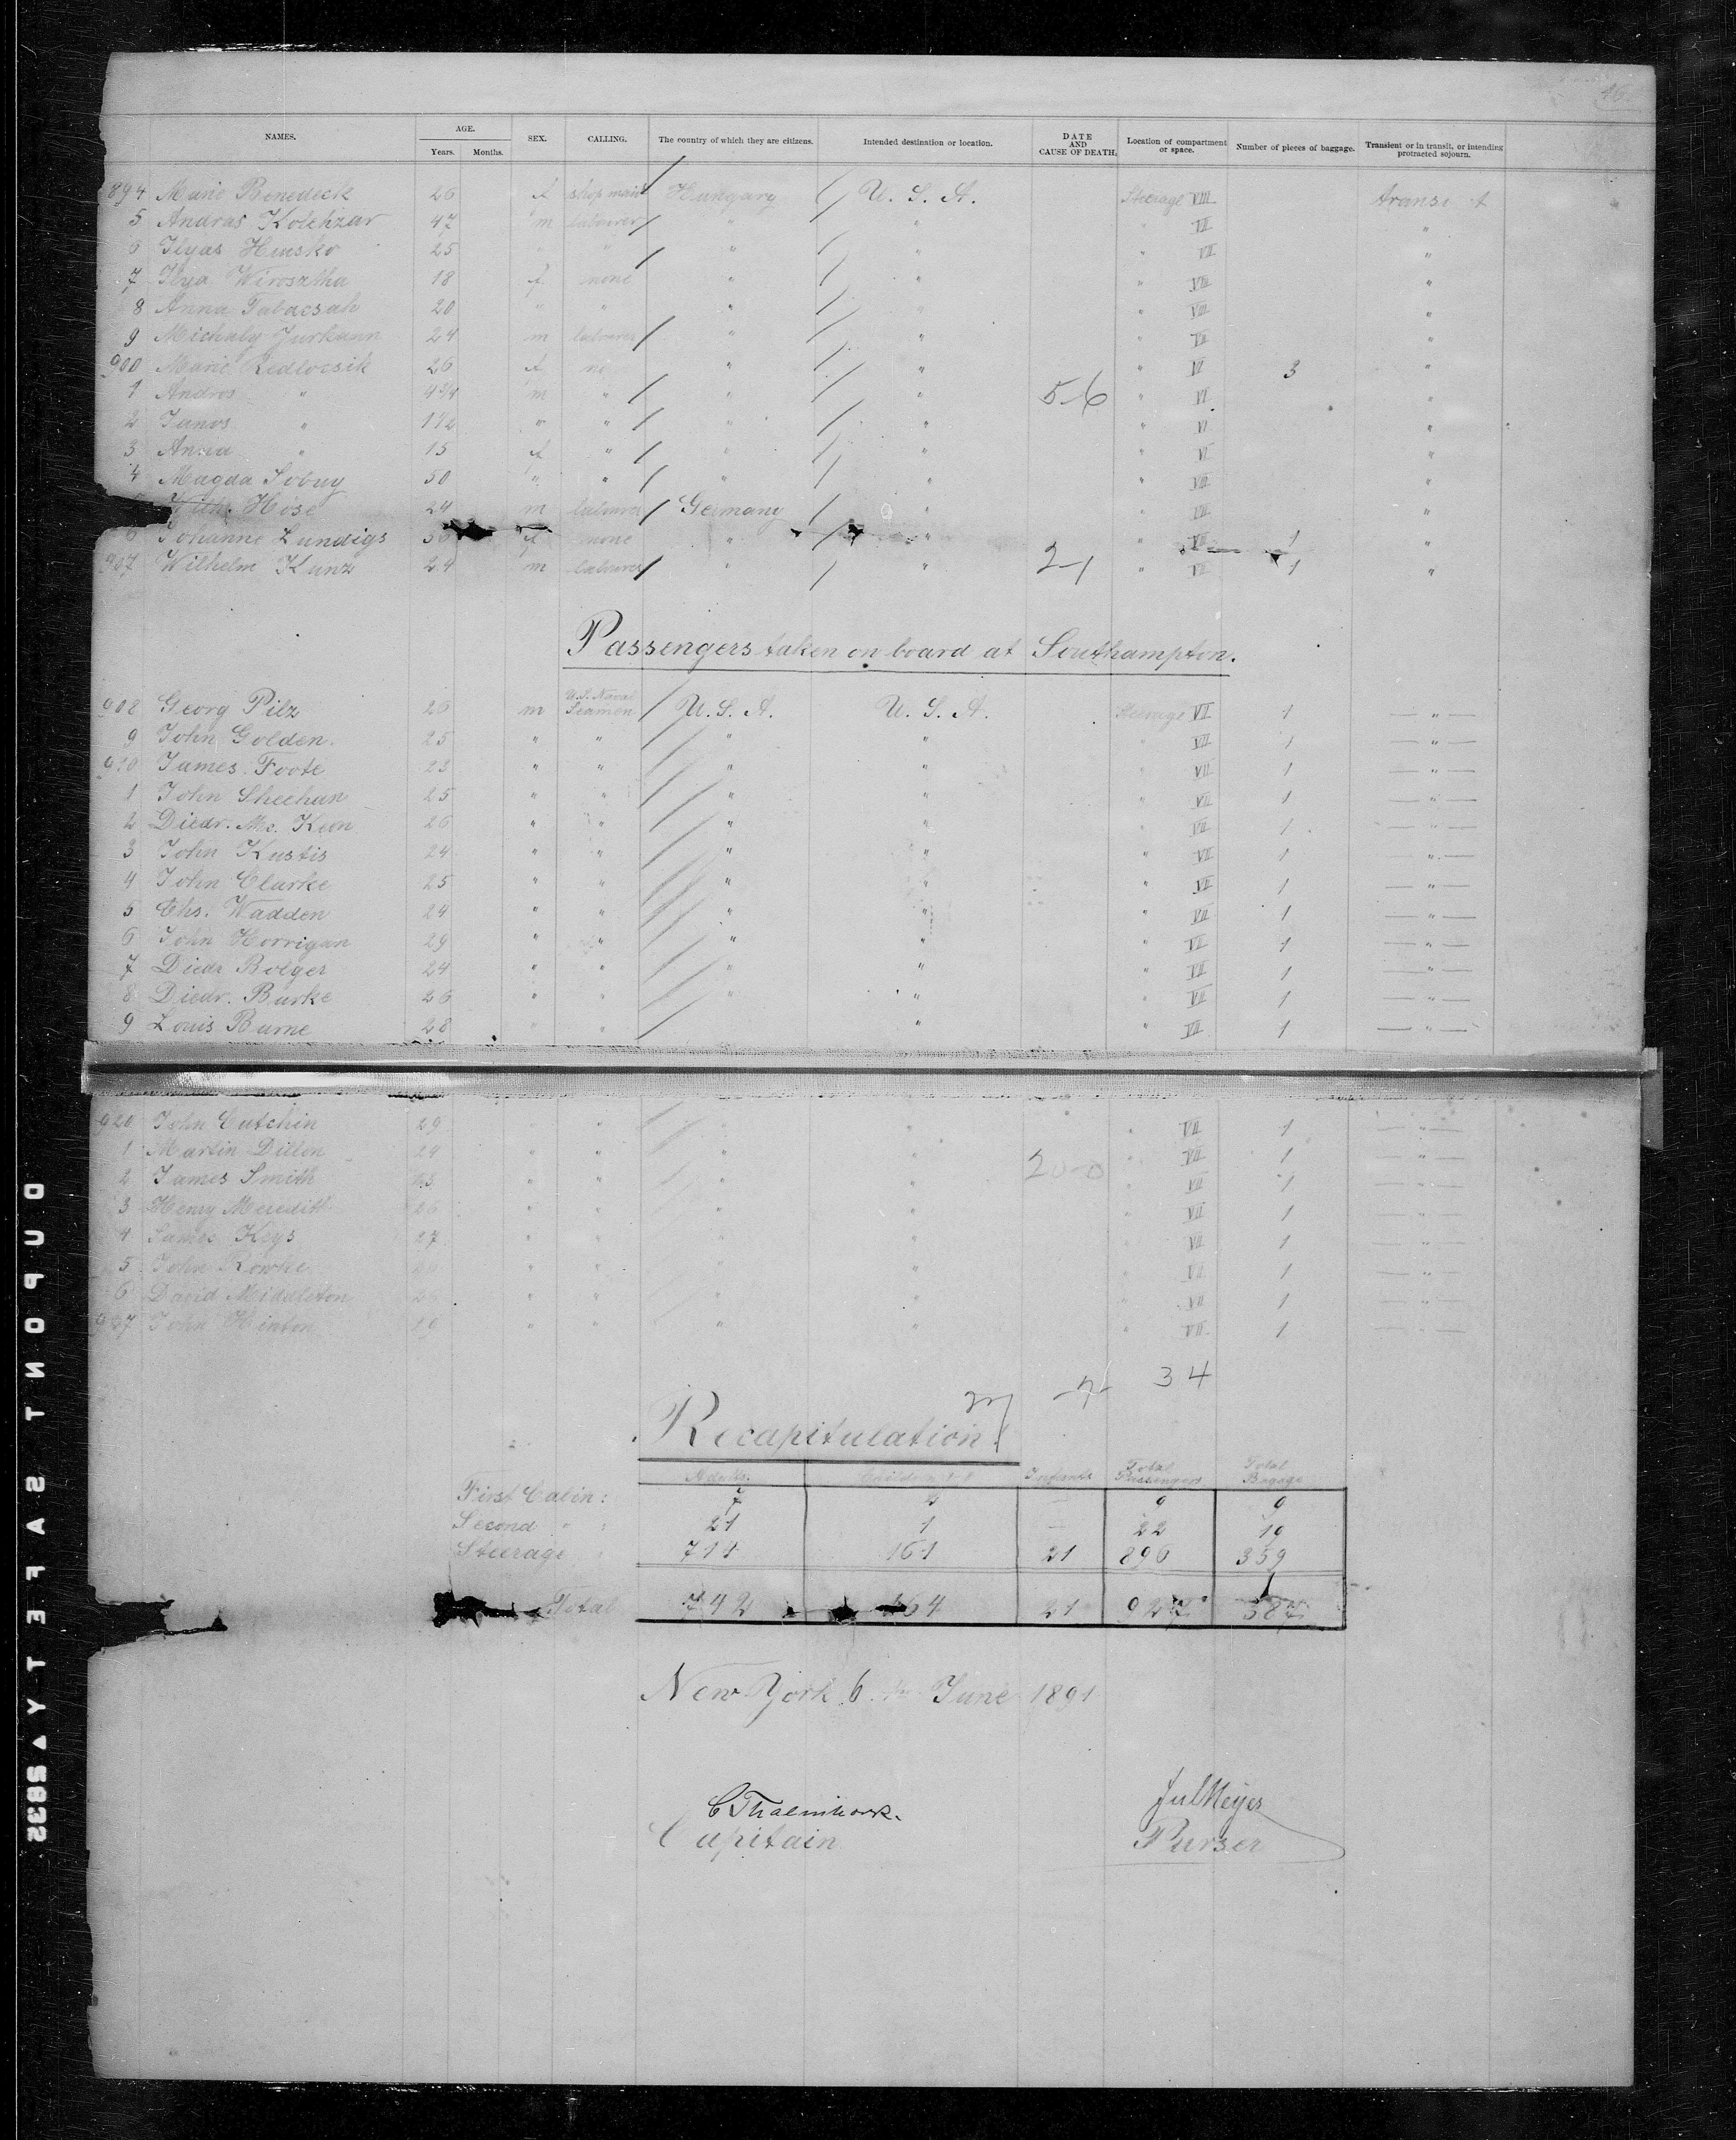 46.
NAMES. AGE. Years. Months. SEX. CALLING. The country of which they are citizens. Intended destination or location. DATE AND CAUSE OF DEATH. Location of compartment or space. Number of pieces of baggage. Transient or in transit, or intending protracted sojourn.
894 Marie Benedeck 26 f shop maid Hungary U. S. A. Steerage VIII transit
5 Andras Kolehzar 47 m labourer " " " VII "
6 Ilyas Husko 25 " " " " " VII "
7 Ilya Wirosztha 18 f none " " " VIII "
8 Anna Tabacsah 20 " " " " " VIII "
9 Michaly Jurkann 24 m labourer " " " VII "
900 Marie Redlocsik 26 f no " " " VI 3 "
1 Andros " 4 3/4 m " " " 5-6 " VI "
2 Janos " 1 1/2 " " " " " VI "
3 Anna " 15 f " " " " VI "
4 Magda Sobuy 50 " " " " " VIII "
Wilh. Hose 24 m labourer Germany " " VII "
6 Johanne Lundigs 56 f none " " " VII 1 "
907 Wilhelm Kunz 24 m labourer " " 2-1 " VII 1 "
Passengers taken on board at Southampton.
908 Georg Pilz 26 m U.S. Naval Seamen U. S. A. U. S. A. Steerage VI 1 — " —
9 John Golden. 25 " " " " " VII 1 — " —
910 James Foote 23 " " " " " VII 1 — " —
1 John Sheehan 25 " " " " " VII 1 — " —
2 Diedr. Mc. Keon 26 " " " " " VII 1 — " —
3 John Kustis 24 " " " " " VII 1 — " —
4 John Clarke 25 " " " " " VII 1 — " —
5 Chs. Wadden 24 " " " " " VII 1 — " —
6 John Horrigan 29 " " " " " VII 1 — " —
7 Diedr Bolger 24 " " " " " VII 1 — " —
8 Diedr. Burke 26 " " " " " VII 1 — " —
9 Louis Burne 28 " " " " VII 1 — " —
920 John Cutchin 29 " " " " " VII 1 — " —
1 Martin Dillon 24 " " " " 20-0 " VII 1 — " —
2 James Smith 23 " " " " " VII 1 — " —
3 Henry Meredith 26 " " " " " VII 1 — " —
4 James Keys 27 " " " " " VII 1 — " —
5 John Rowke " " " " " VII 1 — " —
6 David Middleton 26 " " " " " VII 1 — " —
927 John Hinton " " " " " VII 1 — " —
34
Recapitulation.
Adults. Children Infants Total Passengers Total Bagage
First Cabin: 7 2 — 9 9
Second " : 21 1 — 22 19
Steerage 714 161 21 896 359
Total 742 164 21 927 387
New York 6. June 1891
C Thalenhorst.
Capitain
Jul Meyer
Purser
DUPONT SAFETY 5832